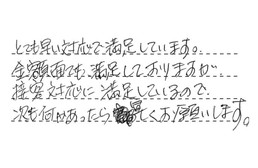 とても早い対応で満足しています。
金額面でも満足しておりますが
接客対応に満足しているので
次も何かあったら早くお願いします。